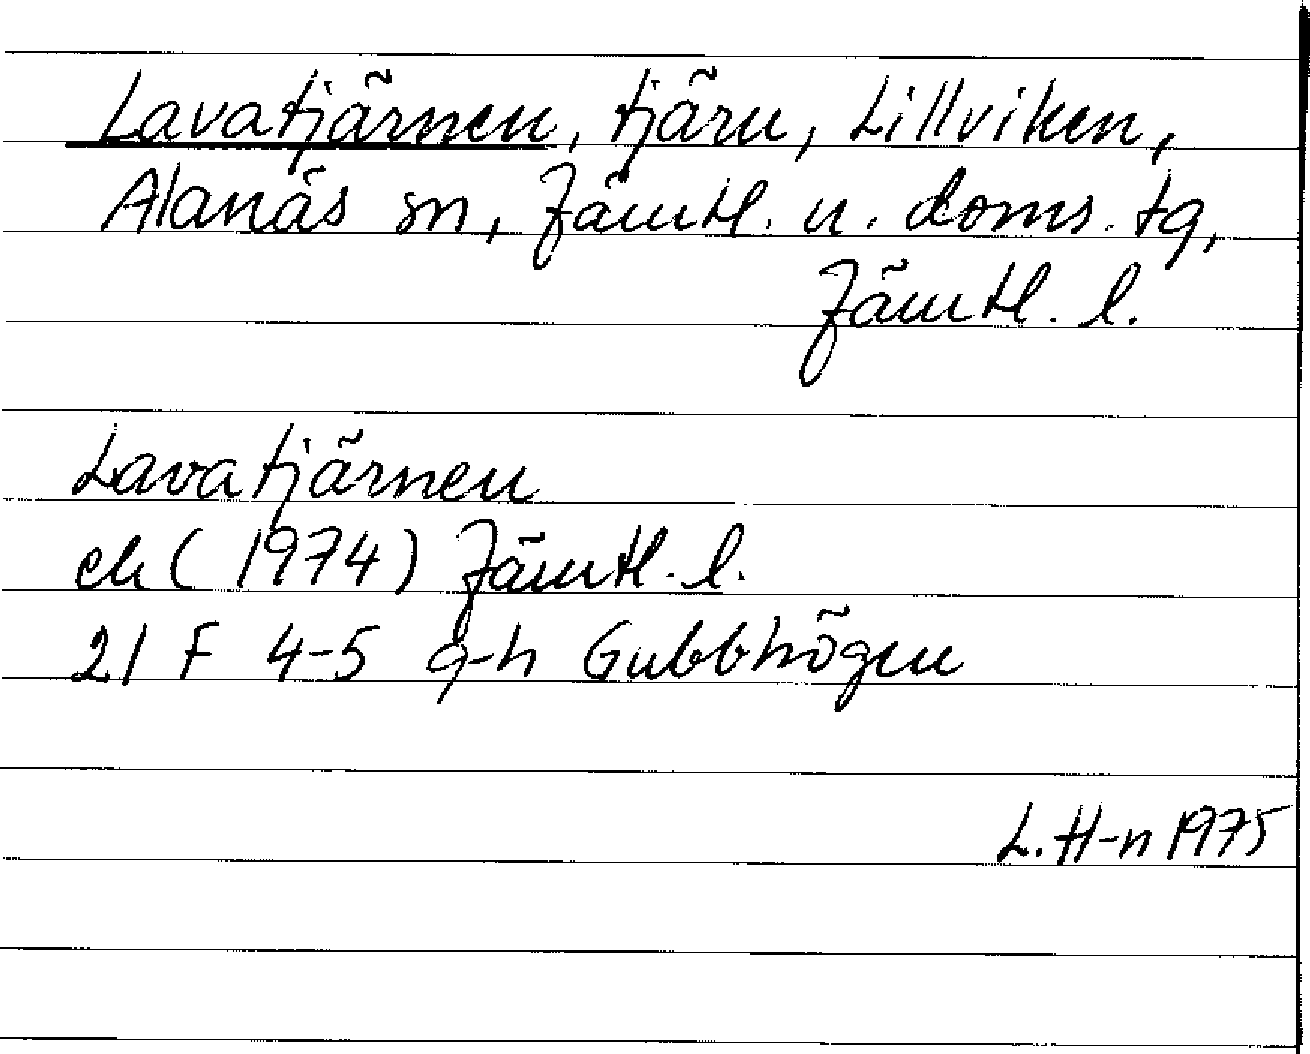 Lavatjärnen, tjärn, Lillviken,
Alanäs sn, Jämtl. n. doms. tg,
Jämtl. l.
Lavatjärnen
ek (1974) Jämtl. l.
21 F 4-5 g-h Gubbhögen
L. H-n 1975